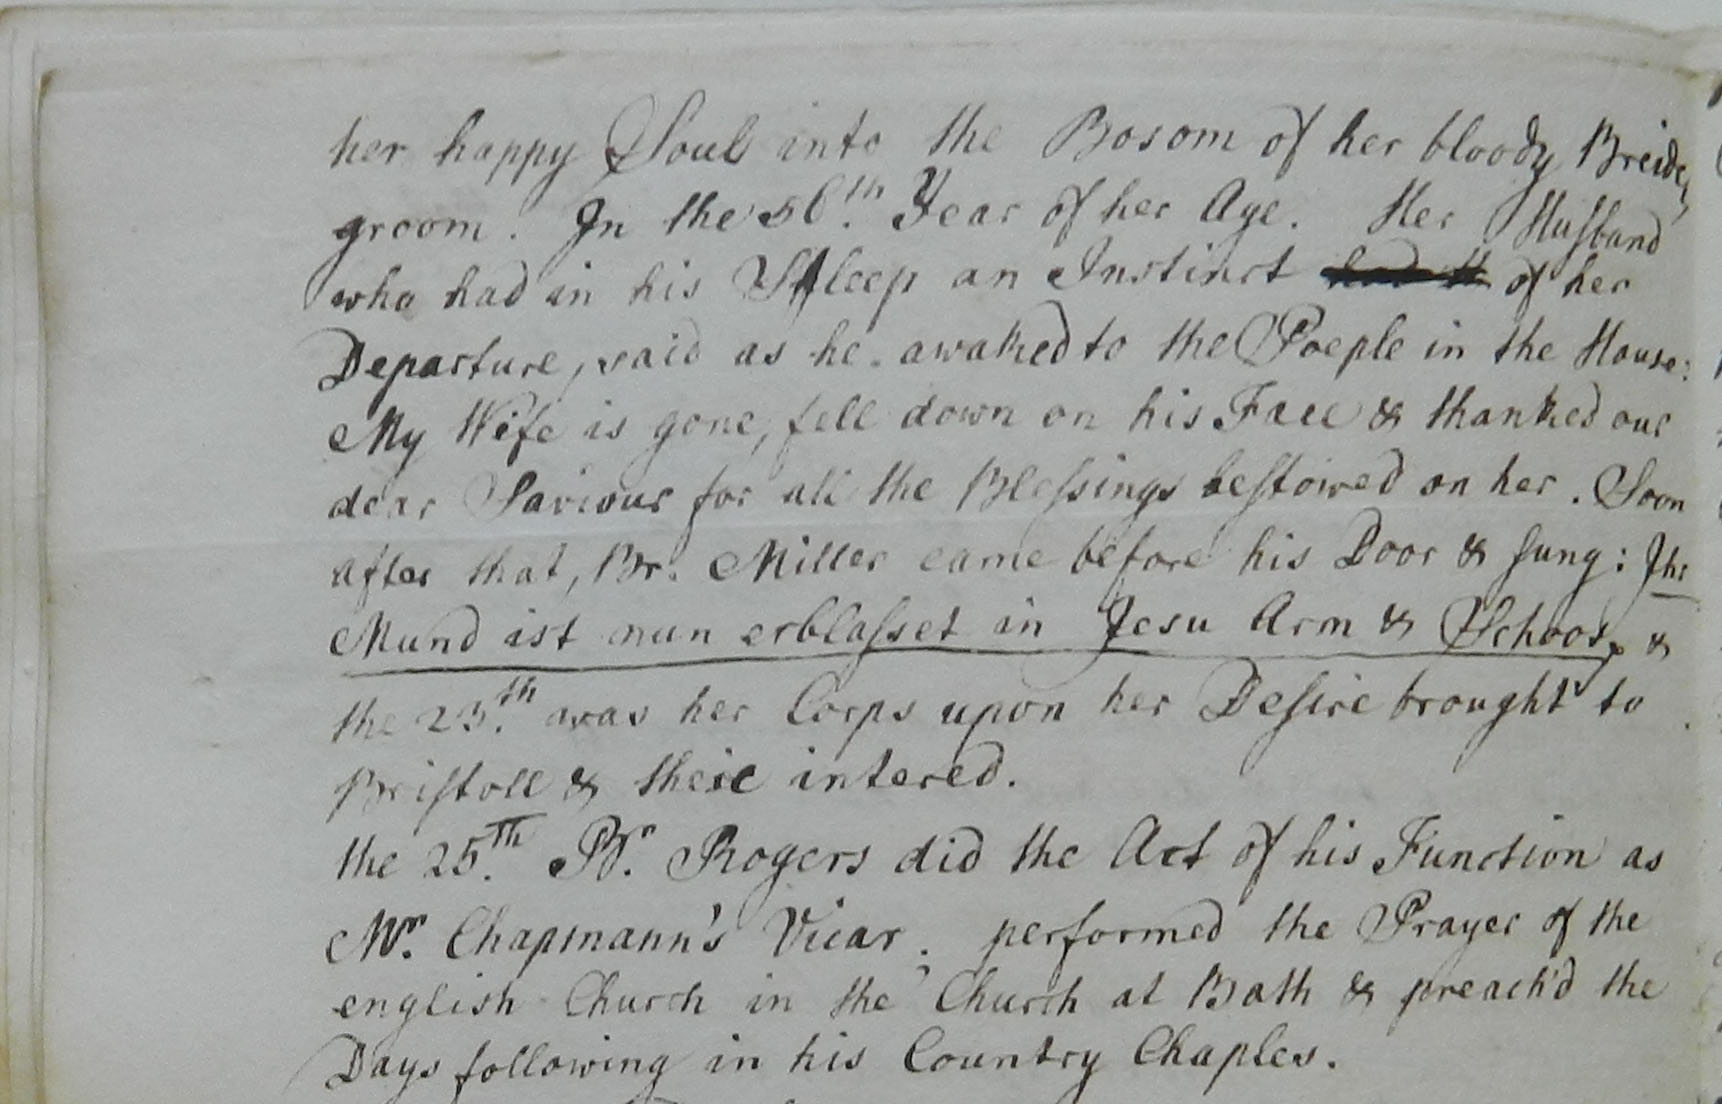 her happy Soul into the Bosom of her bloody Breide,
groom. In the 56.th Year of her Age. Her Husband
who had in his Sleep an Instinct of her
Departure, said as he awaked to the Poeple in the House:
My Wife is gone, fell down on his Face & thanked our
dear Saviour for all the Blessings bestowed on her. Soon
after that, Br. Miller came before his Door & sung: Ihr
Mund ist nun erblasset in Jesu Arm & Schoos, &
the 23.th was her Corps upon her Desire brought to
Bristoll & theie intered.
the 25.Th Br. Rogers did the Act of his Function as
Mr. Chapmann's Vicar; performed the Prayer of the
english Church in the Church at Bath & preach'd the
Days following in his Country Chaples.